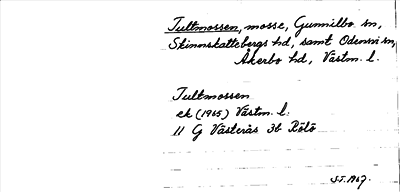 Tultmossen, mosse, Gunnilbo sn,
Skinnskattebergs hd, samt Odensvi sn,
Åkerbo hd, Västm. l.
Tultmossen
ek (1965) Västm. l.
11 G Västerås 3b Rölö
S.F. 1967.